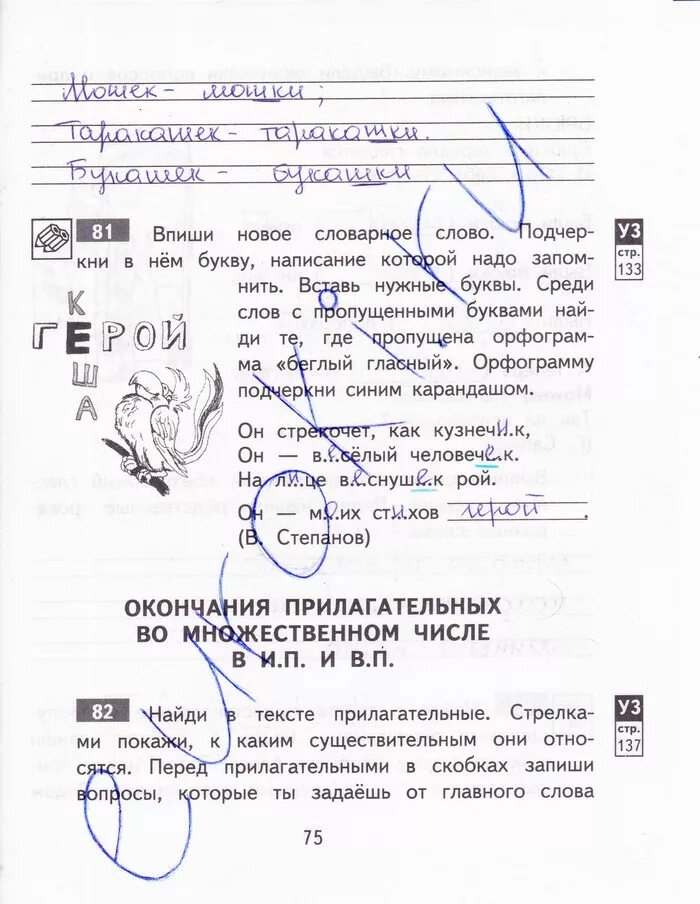 Мошек – мошки;
Таракашек – таракашки.
Букашек – букашки
81 Впиши новое словарное слово. Подчер-
кни в нём букву, написание которой надо запом-
нить. Вставь нужные буквы. Среди
слов с пропущенными буквами най-
ди те, где пропущена орфограм-
ма «беглый гласный». Орфограмму
подчеркни синим карандашом.
УЗ
стр.
133
КЕША
ГЕРОЙ
Он стрекочет, как кузнечик,
Он — весёлый человечек.
На лице веснушек рой.
Он — моих стихов герой.
(В. Степанов)
ОКОНЧАНИЯ ПРИЛАГАТЕЛЬНЫХ
ВО МНОЖЕСТВЕННОМ ЧИСЛЕ
В И.П. И В.П.
82 Найди в тексте прилагательные. Стрелка-
ми покажи, к каким существительным они отно-
сятся. Перед прилагательными в скобках запиши
вопросы, которые ты задаёшь от главного слова
УЗ
стр.
137
75